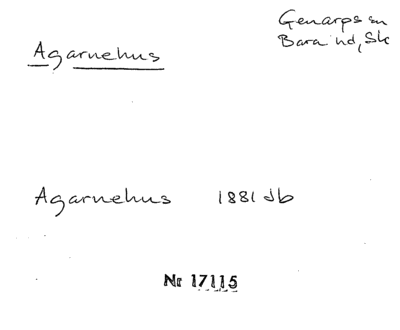 Genarps sn
Bara hd, Sk
Agarnehus
Agarnehus 1881 Jb
Nr 17115